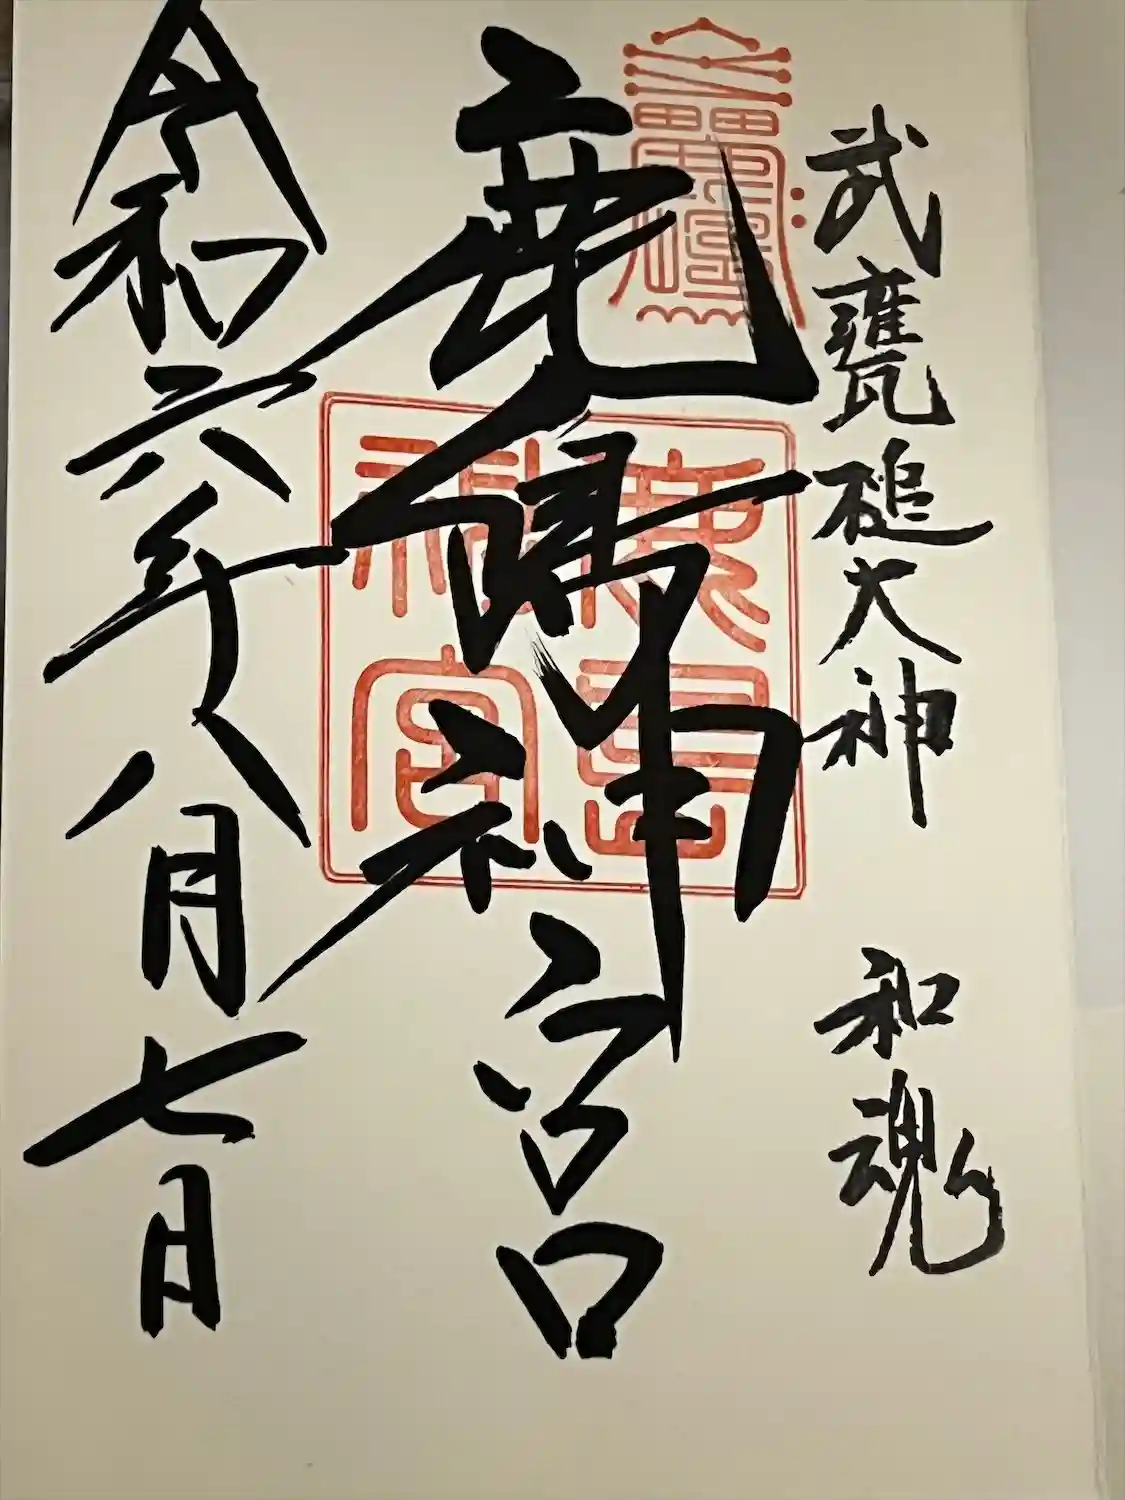 武甕槌大神 和魂
鹿島神宮
鹿島神宮
令和六年八月七日